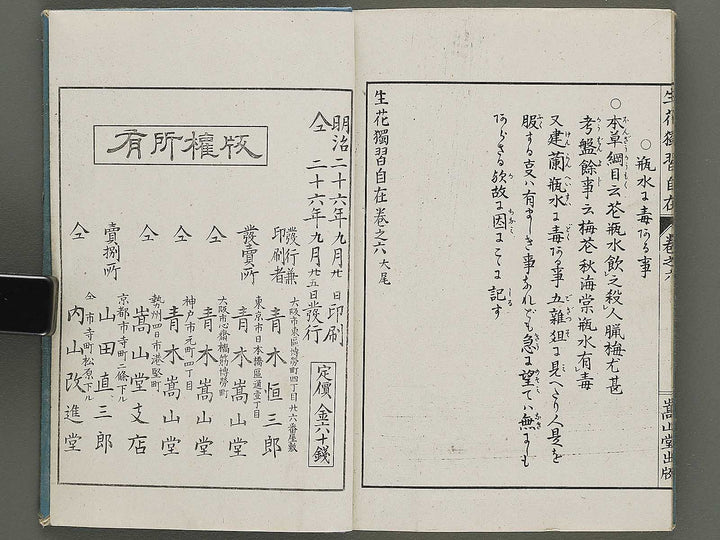 生花獨習自在
卷之六
嵩山堂出版
○瓶水に毒ある事
○本草綱目云花瓶水飲之殺人臘梅尤甚
考盤餘事云梅花秋海棠瓶水有毒
又建蘭瓶水に毒ある事五雜俎に見へたり人是を
服する事ハ有まじき事なれども急に望てハ無にしも
あらざる歟故に因にこゝに記す
生花獨習自在卷之六大尾
明治二十六年九月廿日印刷
仝二十六年九月廿五日發行
定價金六十錢
大阪市東區博勞町四丁目廿六番屋敷
發行兼印刷者
青木恒三郎
東京市日本橋區通壹丁目
發賣所
青木嵩山堂
大阪市心斎橋筋博勞町
仝
青木嵩山堂
神戸市元町四丁目
仝
青木嵩山堂
勢州四日市港堅町
仝
嵩山堂支店
京都市寺町二條下ル
賣捌所
山田直三郎
仝市寺町松原下ル
仝
内山改進堂
版權所有